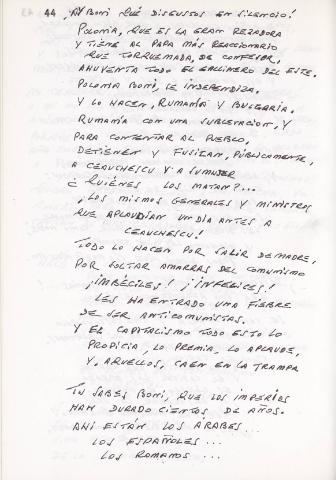 44 ¡AY BONI QUÉ DISGUSTOS EN SILENCIO!
POLONIA, QUE ES LA GRAN REZADORA
Y TIENE AL PAPA MÁS REACCIONARIO
QUE TORQUEMADA, DE CONFESOR,
AHUYENTA TODO EL GALLINERO DEL ESTE.
POLONIA BONI, SE INDEPENDIZA.
Y LO HACEN, RUMANÍA Y BULGARIA.
RUMANÍA CON UNA SUBLEVACION, Y
PARA CONTENTAR AL PUEBLO,
DETIENEN Y FUSILAN, PÚBLICAMENTE,
A CEAUCHESCU Y A SU MUJER
¿QUIÉNES LOS MATAN?...
¡LOS MISMOS GENERALES Y MINISTROS
QUE APLAUDÍAN UN DÍA ANTES A
CEAUCHESCU!
TODO LO HACEN POR SALIR DE MADRE,
POR SOLTAR AMARRAS DEL COMUNISMO
¡IMBÉCILES! ¡INFELICES!
LES HA ENTRADO UNA FIEBRE
DE SER ANTICOMUNISTAS.
Y EL CAPITALISMO TODO ESTO LO
PROPICIA, LO PREMIA, LO APLAUDE,
Y, AQUELLOS, CAEN EN LA TRAMPA
TU SABES BONI, QUE LOS IMPERIOS
HAN DURADO CIENTOS DE AÑOS.
AHI ESTÁN LOS ÁRABES...
LOS ESPAÑOLES...
LOS ROMANOS...